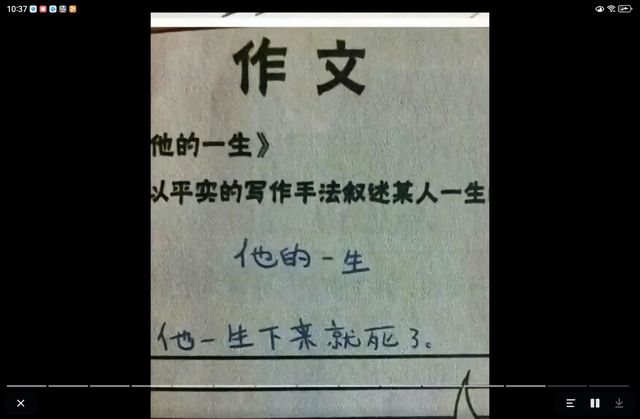 10:37
作文
他的一生》
以平实的写作手法叙述某人一生
他的一生
他一生下来就死了。